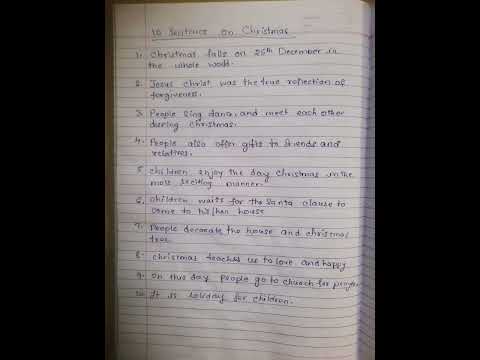 10 Sentence on Christmas
1. Christmas falls on 25th December in
the whole world.
2. Jesus christ was the true reflection of
forgiveness.
3. People sing dance, and meet each other
during christmas.
4. People also offer gifts to friends and
relatives.
5. children enjoy the day christmas in the
most exciting manner.
6. children waits for the Santa clause to
come to his/her house
7. People decorate the house and christmas
tree.
8. christmas teaches us to love and happy
9. On this day people go to church for prayer
10. It is holiday for children.